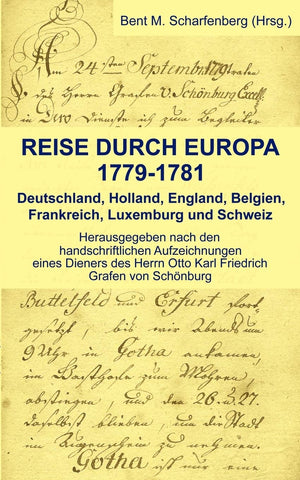 Bent M. Scharfenberg (Hrsg.)
Am 24sten Septembr. 1791 traten
des Herrn Grafen v. Schönburg Excell.
in Dero Dienste ich zum Begleiter
REISE DURCH EUROPA
1779-1781
Deutschland, Holland, England, Belgien,
Frankreich, Luxemburg und Schweiz
Herausgegeben nach den
handschriftlichen Aufzeichnungen
eines Dieners des Herrn Otto Karl Friedrich
Grafen von Schönburg
Buttelfeld und Erfurt fort-
gesetzt, bis wir Abends um
9 Uhr in Gotha ankamen,
im Gasthofe zum Mohren,
abstingen, und den 26. u. 27.
daselbst blieben, um die Stadt
im Augenschein zu nehmen.
Gotha ist mir eine